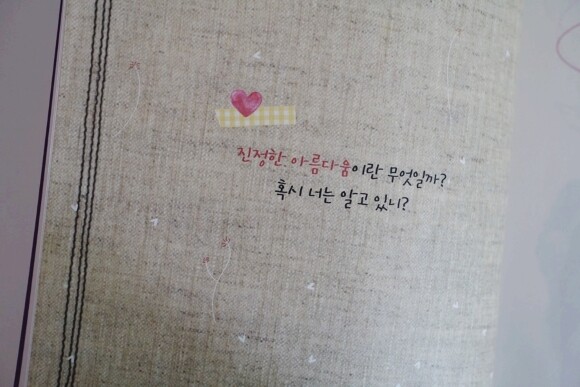 진정한 아름다움이란 무엇일까?
혹시 너는 알고 있니?